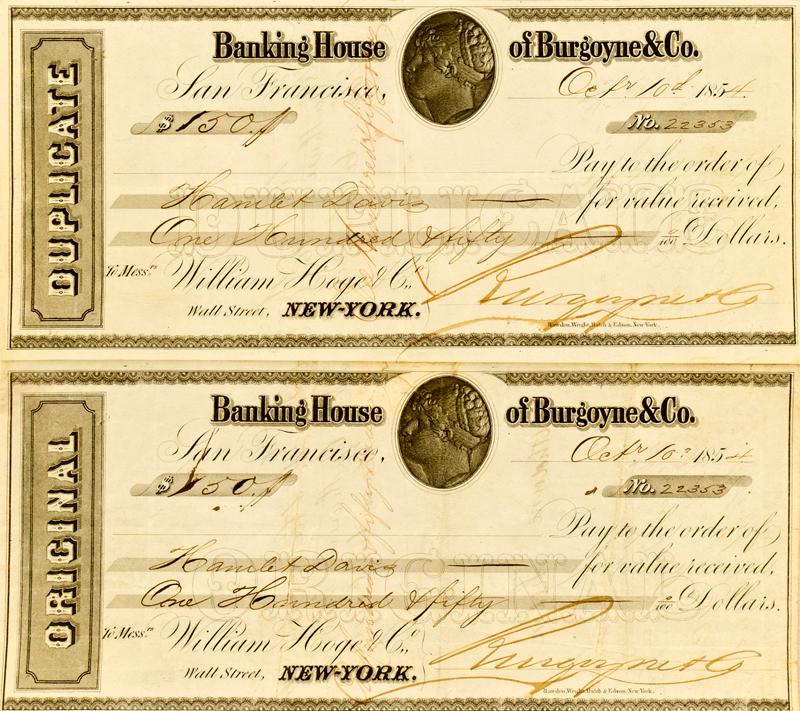 DUPLICATE
Banking House of Burgoyne & Co.
San Francisco, Octr. 10th 1854
$150.
No. 22353
Pay to the order of
Hamlet Davis — for value received,
One Hundred & fifty — /100 Dollars.
To Messrs. William Hoge & Co.,
Wall Street, NEW-YORK.
Burgoyne & Co
Rawdon, Wright, Hatch & Edson, New York.
ORIGINAL
Banking House of Burgoyne & Co.
San Francisco, Octr. 10th 1854
$150.
No. 22353
Pay to the order of
Hamlet Davis — for value received,
One Hundred & fifty — /100 Dollars.
To Messrs. William Hoge & Co.,
Wall Street, NEW-YORK.
Burgoyne & Co
Rawdon, Wright, Hatch & Edson, New York.